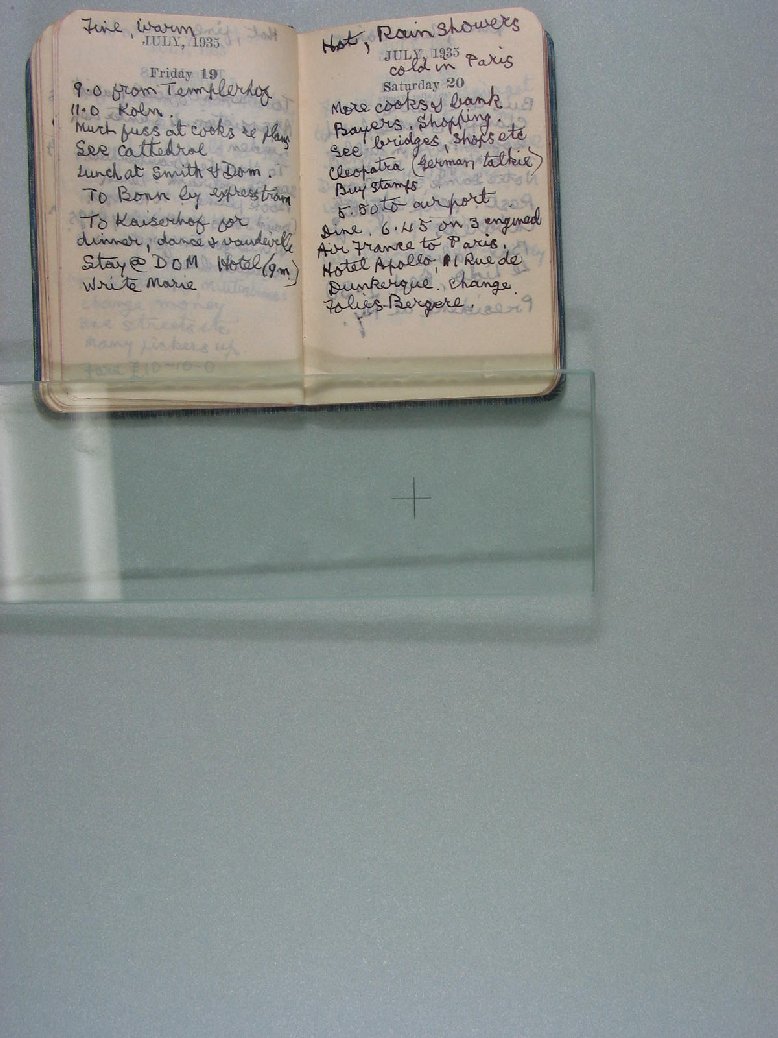 Fine, warm
JULY, 1935
Friday 19
9.0 from Templerhof
11.0 Koln.
Much fuss at cooks re plans
See cathedral
Lunch at Smith & Dom.
To Bonn by express tram
To Kaiserhof for
dinner, dance & vaudeville
Stay @ DOM Hotel (9m)
Write Marie
change money
see streets etc
many pickers up.
fare £10-10-0
Hot, Rain showers
JULY, 1935
cold in Paris
Saturday 20
More cooks & bank
Bayers. Shopping.
See bridges, shops etc
Cleopatra (German talkie)
Buy stamps
5.50 to airport.
Dine. 6.45 on 3 engined
Air France to Paris.
Hotel Apollo, 11 Rue de
Dunkerque. Change.
Folies Bergere.